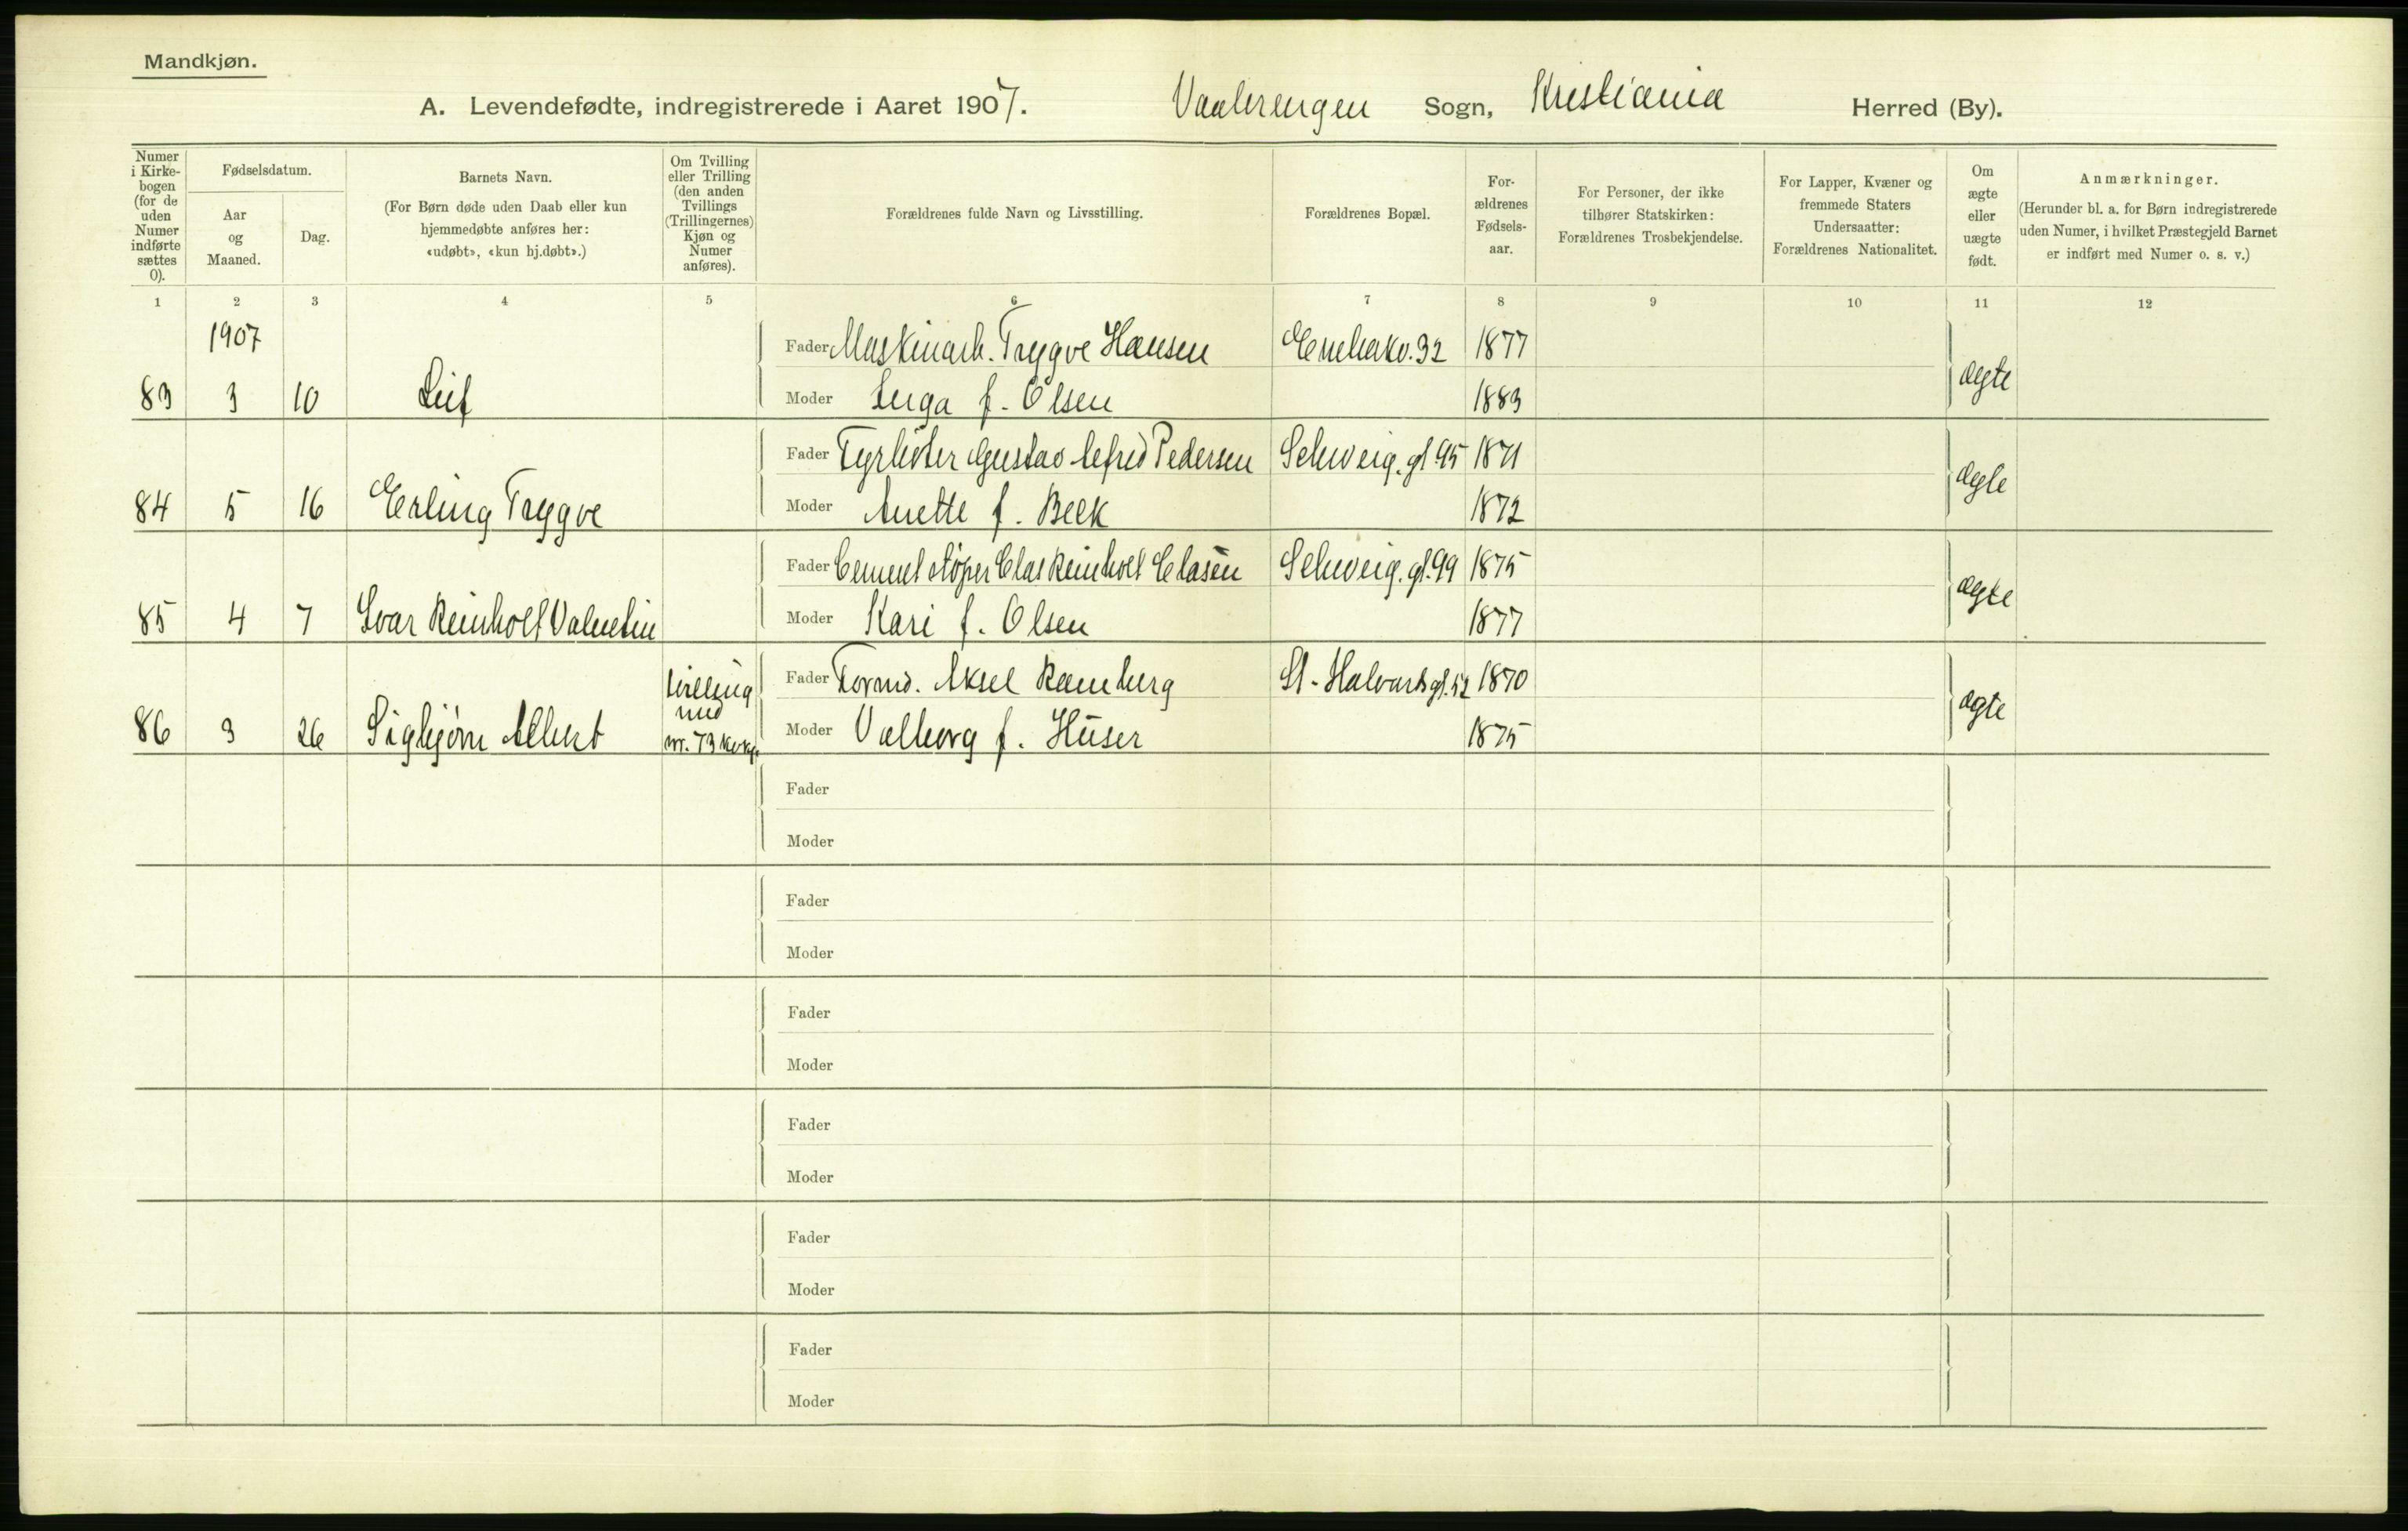 Mandkjøn.
A. Levendefødte, indregistrerede i Aaret 1907. Vaalerengen Sogn, Kristiania Herred (By).
Numer i Kirkebogen (for de uden Numer indførte sættes 0).
Fødselsdatum.
Aar og Maaned.
Dag.
Barnets Navn.
(For Børn døde uden Daab eller kun hjemmedøbte anføres her: «udøbt», «kun hj.døbt».)
Om Tvilling eller Trilling (den anden Tvillings (Trillingernes) Kjøn og Numer anføres).
Forældrenes fulde Navn og Livsstilling.
Forældrenes Bopæl.
Forældrenes Fødselsaar.
For Personer, der ikke tilhører Statskirken: Forældrenes Trosbekjendelse.
For Lapper, Kvæner og fremmede Staters Undersaatter: Forældrenes Nationalitet.
Om ægte eller uægte født.
Anmærkninger.
(Herunder bl. a. for Børn indregistrerede uden Numer, i hvilket Præstegjeld Barnet er indført med Numer o. s. v.)
1 2 3 4 5 6 7 8 9 10 11 12
1907
Fader Maskinarb. Trygve Hansen 1877
83 3 10 Leif Moder Inga f. Olsen 1883 ægte
Fader Fyrbøter Gustav Alfred Pedersen Schweig. gt 95 1871
84 5 16 Erling Trygve Moder Anette f. Beck 1872 ægte
Fader Cementstøper Clas Reinholt Clasen Schweig. gt. 99 1875
85 4 7 Ivar Reinholt Valentin Moder Kari f. Olsen 1877 ægte
tvilling med nr. 73 kvkj.
Fader Formd. Aksel Ramberg St. Halvards gt. 52 1870
86 3 26 Sigbjørn Albert Moder Valborg f. Huser 1875 ægte
Fader
Moder
Fader
Moder
Fader
Moder
Fader
Moder
Fader
Moder
Fader
Moder